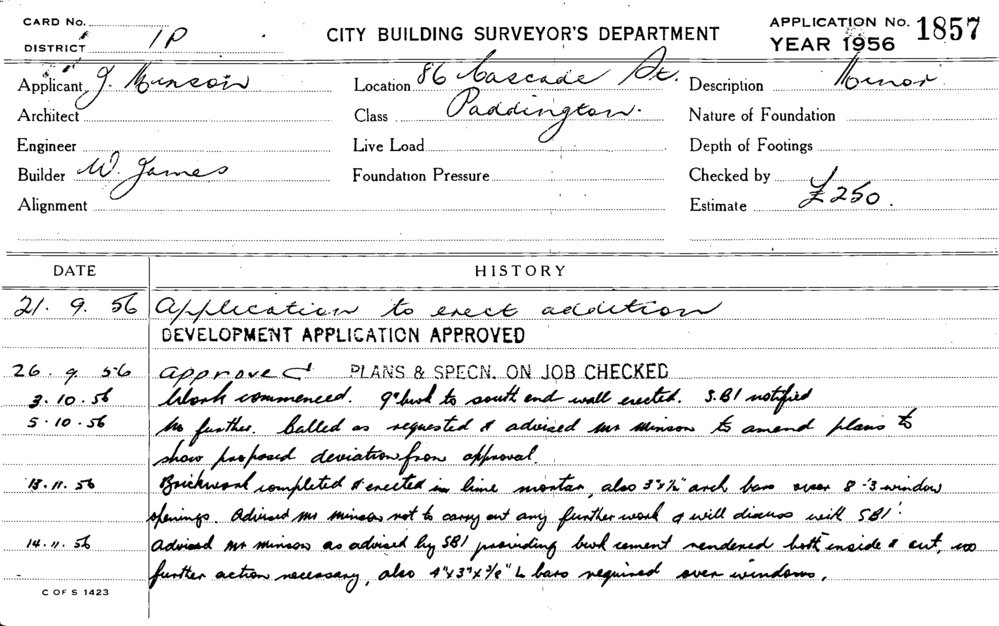 CARD No.
DISTRICT 1P
CITY BUILDING SURVEYOR'S DEPARTMENT
APPLICATION No. 1857
YEAR 1956
Applicant J. Minson
Location 86 Cascade St.
Description Minor
Architect
Class Paddington.
Nature of Foundation
Engineer
Live Load
Depth of Footings
Builder W. James
Foundation Pressure
Checked by
Alignment
Estimate £250.
DATE HISTORY
21. 9. 56 Application to erect addition
DEVELOPMENT APPLICATION APPROVED
26. 9. 56 Approved PLANS & SPECN. ON JOB CHECKED
3. 10. 56 Work commenced. 9" bwk to south end wall erected. S.B1 notified
5. 10. 56 No further. Called as requested & advised Mr Minson to amend plans to
show proposed deviation from approval.
13. 11. 56 Brickwork completed & erected in lime mortar, also arch bars over 8'-3 window
openings. Advised Mr Minson not to carry out any further work & will discuss with SB1.
14. 11. 56 Advised Mr Minson as advised by SB1 providing bwk cement rendered both inside & out, no
further action necessary, also 4"x3"x3/8" L bars required over windows.
C OF S 1423